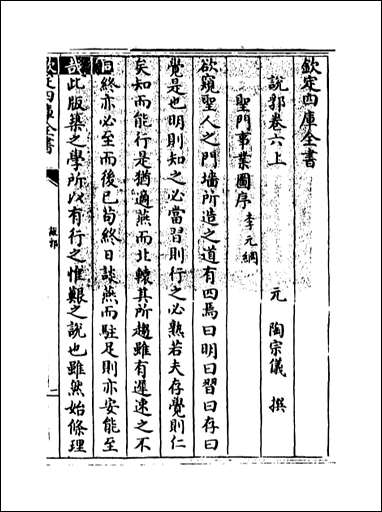 欽定四庫全書
說郛卷六上
元 陶宗儀 撰
聖門事業圖序 李元綱
欲窺聖人之門墻所造之道有四焉曰明曰習曰存曰
覺是也明則知之必當習則行之必熟若夫存覺則仁
矣知而能行是猶適燕而北轅其所趨雖有遲速之不
同終亦必至而後已苟終日談燕而駐足則亦安能至
哉此版築之學所以有行之惟艱之說也雖然始條理
欽定四庫全書
說郛